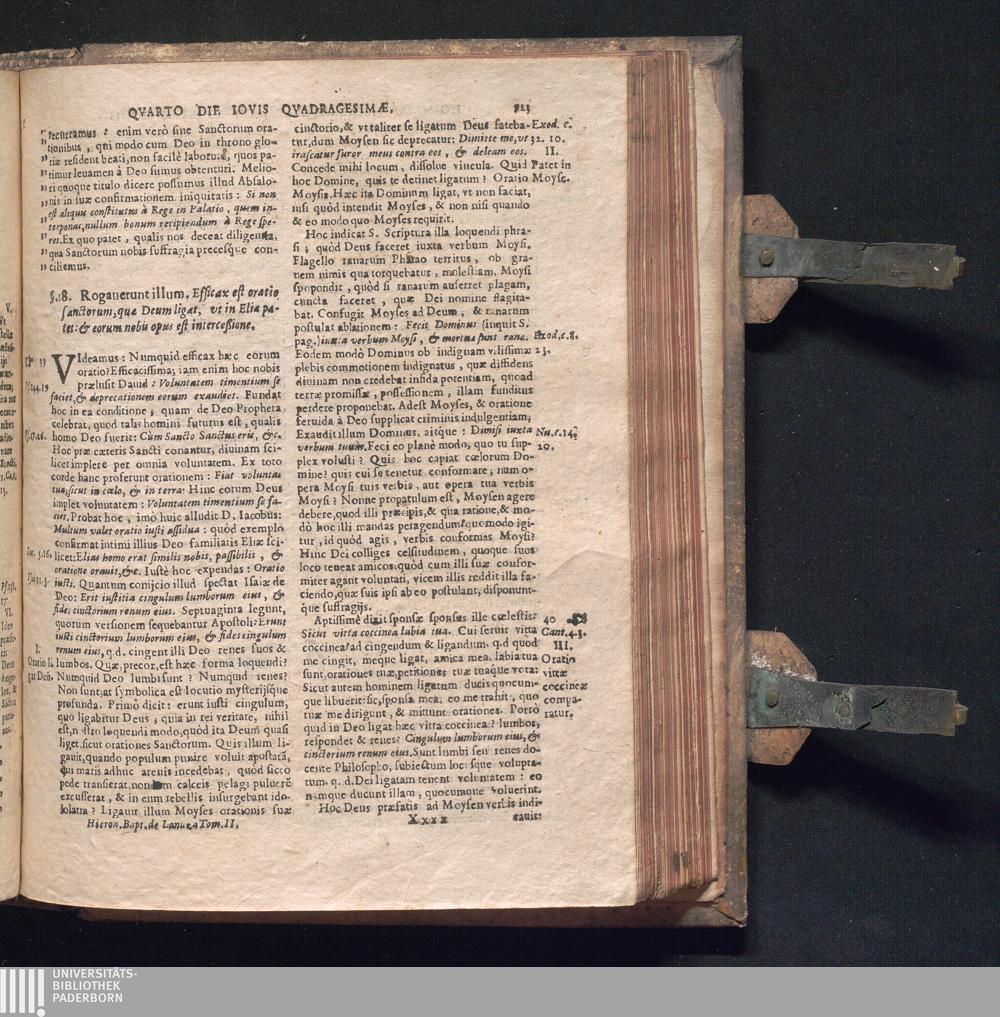 QVARTO DIE IOVIS QVADRAGESIMÆ.
recurramus: enim verò sine Sanctorum ora-
tionibus, qui modo cum Deo in throno glo-
riæ resident beati, non facilè laborum, quos pa-
timur leuamen à Deo sumus obtenturi. Melio-
ri quoque titulo dicere possumus illud Absalo-
nis in suæ confirmationem iniquitatis: Si non
est aliquis constitutus à Rege in Palatio, quem in-
terponas, nullum bonum recipiendum à Rege spe-
res. Ex quo patet, qualis nos deceat diligentia,
qua Sanctorum nobis suffragia precesque con-
ciliemus.
§.18. Rogauerunt illum. Efficax est oratio
sanctorum, qua Deum ligat, vt in Elia pa-
tet: & eorum nobis opus est intercessione.
VIdeamus: Numquid efficax hæc eorum
oratio? Efficacissima; iam enim hoc nobis
prælusit Dauid: Voluntatem timentium se
faciet, & deprecationem eorum exaudiet. Fundat
hoc in ea conditione, quam de Deo Propheta
celebrat, quod talis homini futurus est, qualis
homo Deo fuerit: Cum Sancto Sanctus eris, &c.
Hoc præ cæteris Sancti conantur, diuinam sci-
licet implere per omnia voluntatem. Ex toto
corde hanc proferunt orationem: Fiat voluntas
tua, sicut in cœlo, & in terra: Hinc eorum Deus
implet voluntatem: Voluntatem timentium se fa-
ciet. Probat hoc, imò huic alludit D. Iacobus:
Multum valet oratio iusti assidua: quòd exemplo
confirmat intimi illius Deo familiaris Eliæ sci-
licet: Elias homo erat similis nobis, passibilis, &
oratione orauit, &c. Iustè hoc expendas: Oratio
iusti. Quantum conijcio illud spectat Isaiæ de
Deo: Erit iustitia cingulum lumborum eius, &
fides cinctorium renum eius. Septuaginta legunt,
quorum versionem sequebantur Apostoli: Erunt
iusti cinctorium lumborum eius, & fides cingulum
renum eius, q.d. cingent illi Deo renes suos &
lumbos. Quæ, precor, est hæc forma loquendi?
Numquid Deo lumbi sunt? Numquid renes?
Non sunt; at symbolica est locutio mysterijsque
profunda. Primò dicit: erunt iusti cingulum,
quo ligabitur Deus; quia in rei veritate, nihil
est, nostro loquendi modo, quòd ita Deum quasi
liget, sicut orationes Sanctorum. Quis illum li-
gauit, quando populum punire voluit apostatā,
qui maris adhuc arenis incedebat, quòd sicco
pede transierat, nondum calceis pelagi puluerē
excusserat, & in eum rebellis insurgebant ido-
lolatra? Ligauit illum Moyses orationis suæ
Hieron. Bapt. de Lanuza Tom. II.
Psal. 144.19
Iac. 5.16.
I.
Oratio li-
gat Deū.
cinctorio, & vt taliter se ligatum Deus fateba-
tur, dum Moysen sic deprecatur: Dimitte me, vt
irascatur furor meus contra eos, & deleam eos.
Concede mihi locum, dissolue vincula. Quid
hoc Domine, quis te detinet ligatum? Oratio
Moysis. Hæc ita Dominum ligat, vt non faciat,
nisi quòd intendit Moyses, & non nisi quando
& eo modo quo Moyses requirit.
Hoc indicat S. Scriptura illa loquendi phra-
si; quòd Deus faceret iuxta verbum Moysi.
Flagello ranarum Pharao territus, ob gra-
uem nimis qua torquebatur, molestiam, Moysi
spopondit, quòd si ranarum auferret plagam,
cuncta faceret, quæ Dei nomine flagita-
bat. Confugit Moyses ad Deum, & ranarum
postulat ablationem: Fecit Dominus (inquit S.
pag.) iuxta verbum Moysi, & mortuæ sunt ranæ.
Eodem modò Dominus ob indignam vilissimæ
plebis commotionem indignatus, quæ diffidens
diuinam non credebat infida potentiam, quoad
terræ promissæ, possessionem, illam funditus
perdere proponebat. Adest Moyses, & oratione
feruida à Deo supplicat criminis indulgentiam;
Exaudit illum Dominus, aitque: Dimisi iuxta
verbum tuum. Feci eo planè modo, quo tu sup-
plex voluisti? Quis hoc capiat cœlorum Do-
mine? quis cui se tenetur conformare; num o-
pera Moysi tuis verbis, aut opera tua verbis
Moysi? Nonne propatulum est, Moysen agere
debere, quod illi præcipis, & qua ratione, & mo-
dò hoc illi mandas peragendum? quomodo igi-
tur, id quòd agis, verbis conformas Moysi?
Hinc Dei colliges celsitudinem, quoque suos
loco teneat amicos: quòd cum illi suæ confor-
miter agant voluntati, vicem illis reddit illa fa-
ciendo, quæ suis ipsi ab eo postulant, disponunt-
que suffragijs.
Aptissimè dixit sponsæ sponsus ille cœlestis:
Sicut vitta coccinea labia tua. Cui seruit vitta
coccinea? ad cingendum & ligandum. q.d quod
me cingit, meque ligat, amica mea, labia tua
sunt, orationes tuæ, petitiones tuæ tuaque vota:
Sicut autem hominem ligatum ducis quocum-
que libuerit: sic, sponsa mea, eo me trahit, quo
tuæ me dirigunt, & mittunt orationes. Porrò
quid in Deo ligat hæc vitta coccinea? lumbos,
respondet & renes: Cingulum lumborum eius, &
cinctorium renum eius. Sunt lumbi seu renes do-
cente Philosopho, subiectum locusque volupta-
tum. q. d. Dei ligatam tenent voluntatem: eo
namque ducunt illam, quocumque voluerint.
Hoc Deus præfatis ad Moysen verbis indi-
Xxxx
cauit:
Exod. c.
32. 10.
II.
Patet in
Moyse.
Exod. c. 8.
Nu. c. 14.
20.
40
Cant. 4.3.
III.
Oratio
vittæ
coccineæ
compa-
ratur.
UNIVERSITÄTS-
BIBLIOTHEK
PADERBORN